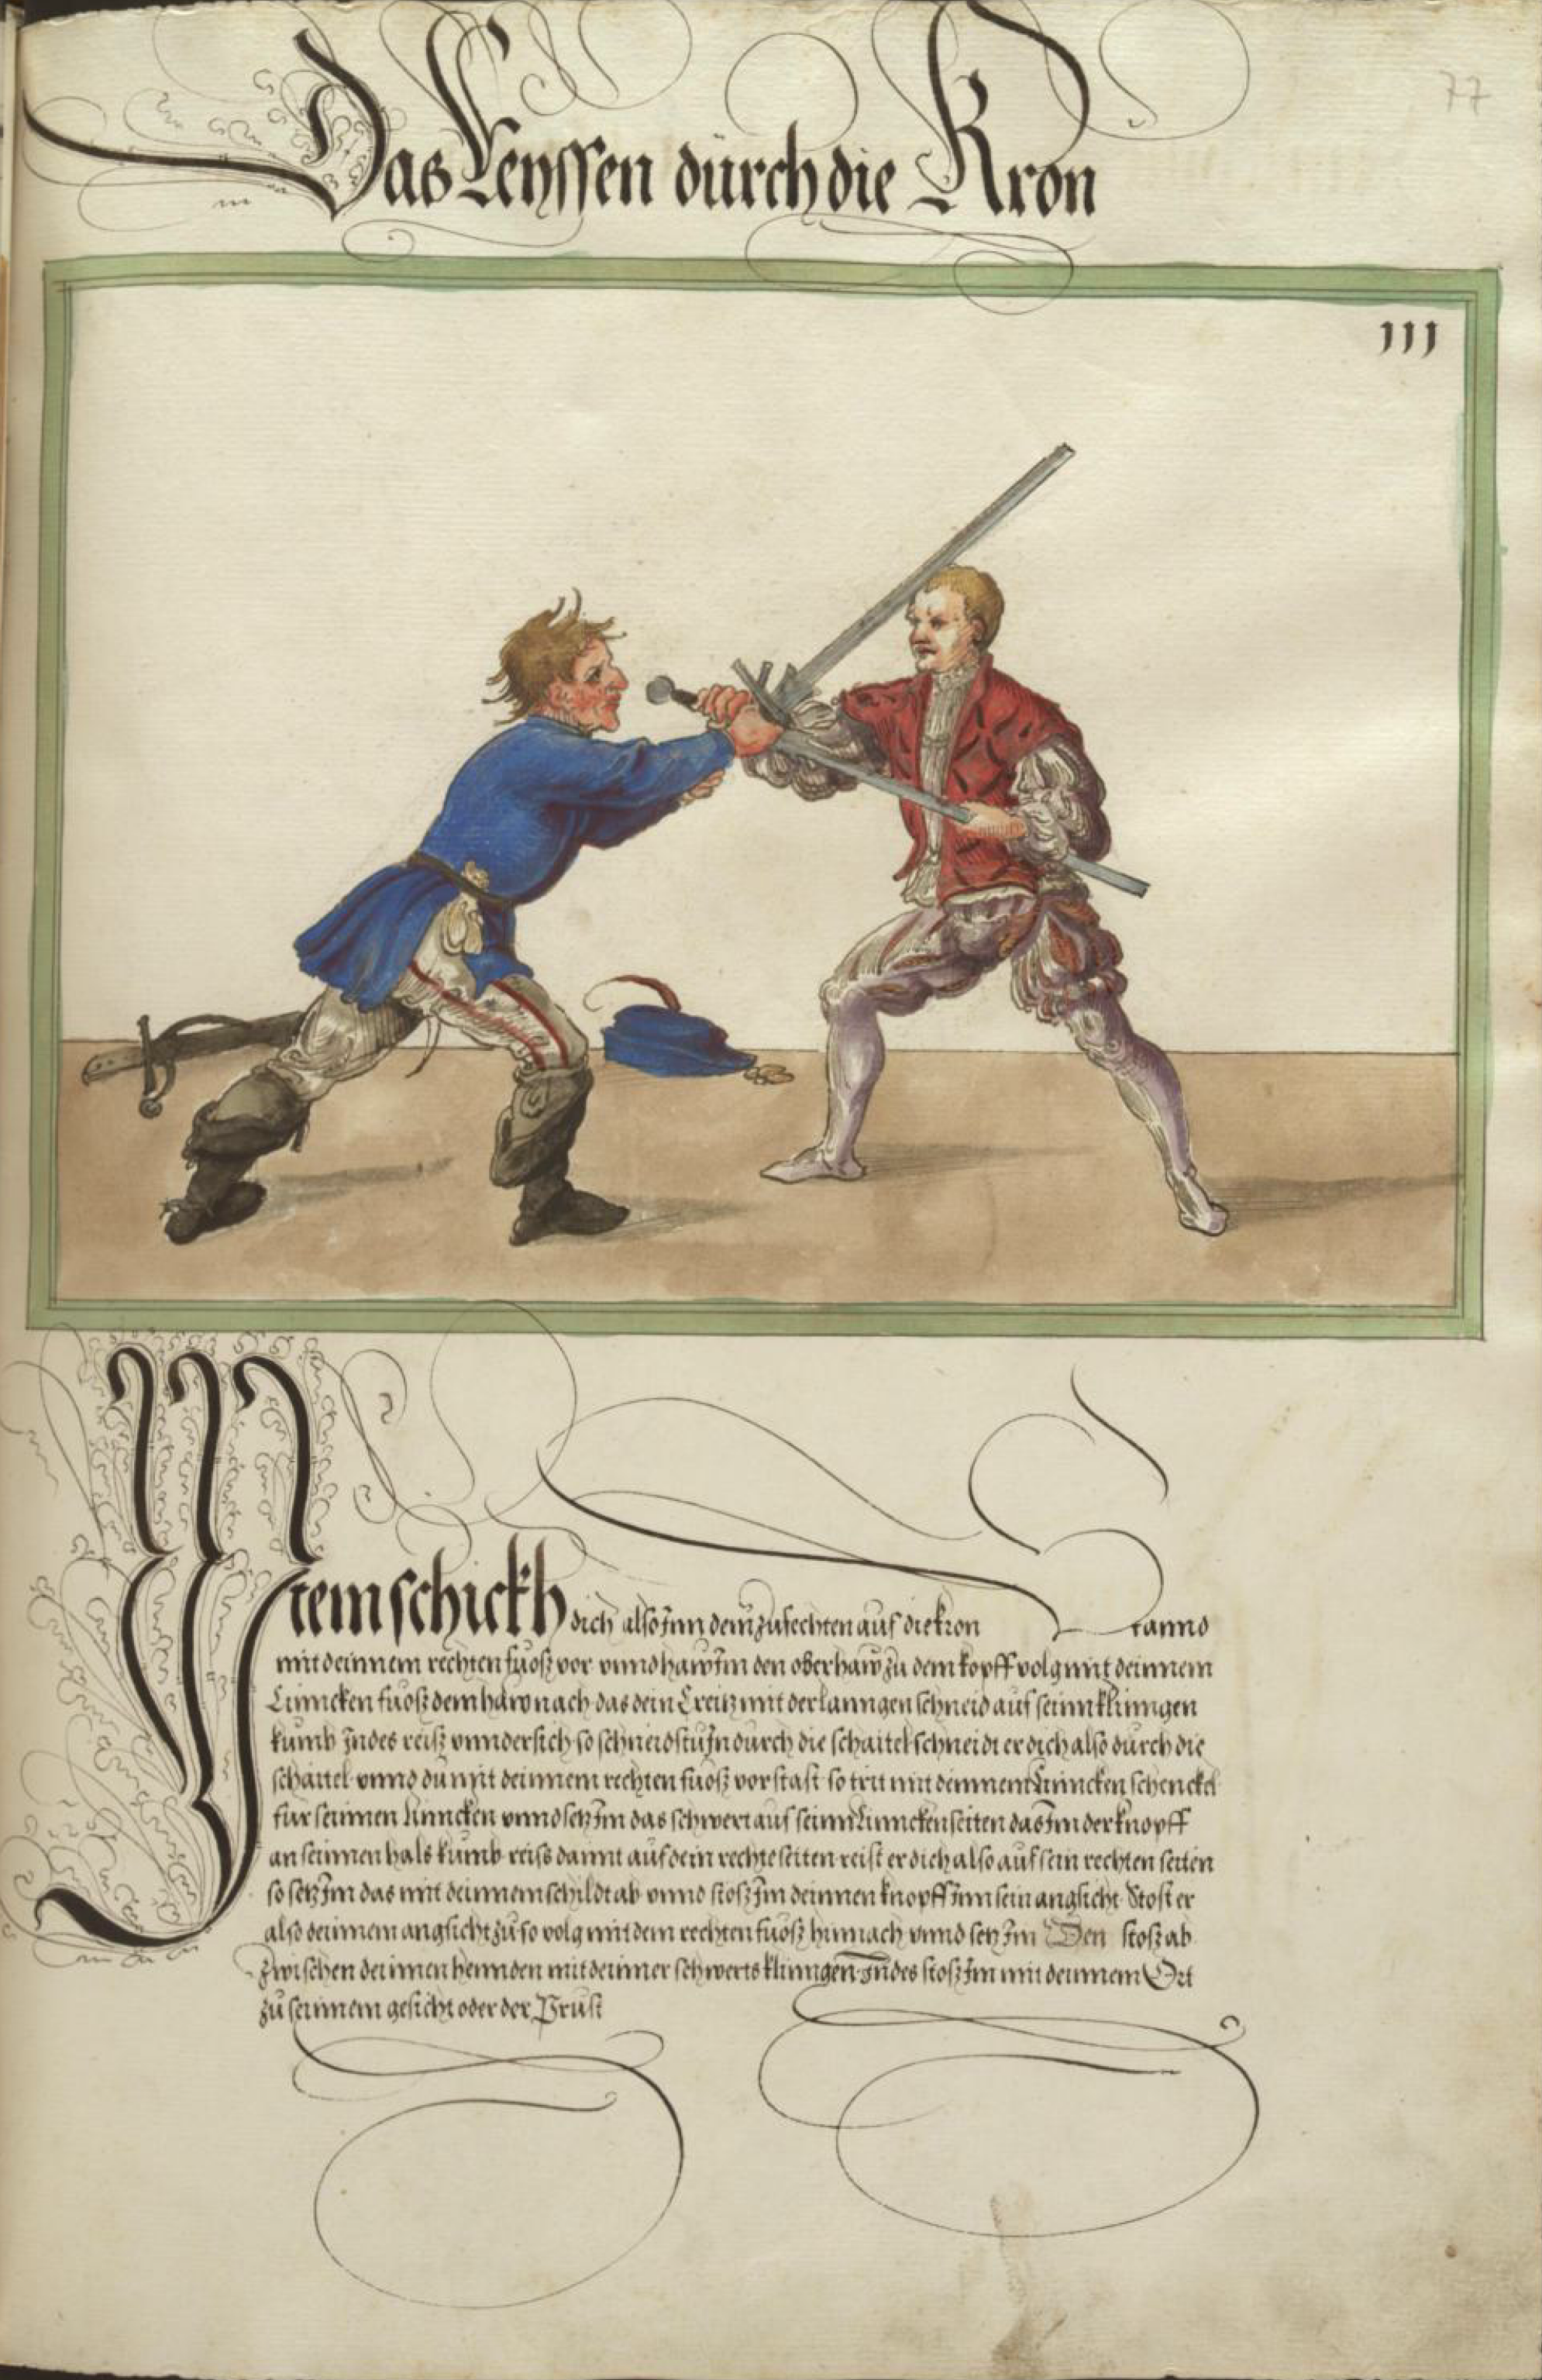 77
Das Reyssen durch die Kron
111
Item schickh dich also Inn dem zufechten auf die kron tannd
mit deinnem rechten fuosz vor unnd haw Im den oberhaw zu dem kopff volg mit deinnem
Linncken fuosz dem haw nach das dein Creitz mit der lanngen schneid auf seinn klinngen
kumb Indes reisz unndersich so schneidstu In durch die schaitel schneidt er dich also durch die
schaittel unnd du mit deinnem rechten fuosz vor stast so trit mit deinnem Linncken schenckel
für seinnen linncken unnd setz Im das schwert auf seinn Linncken seiten das Im der knopff
an seinnen hals kumb reiss damit auf dein rechte seiten reist er dich also auf sein rechten seiten
so setz Im das mit deinnem schildt ab unnd stosz Im deinnen knopff Inn sein angsicht Stost er
also deinnem angsicht zu so volg mit dem rechten fuosz hinnach unnd setz Im Den stosz ab
zwischen deinnen hennden mit deinner schwerts klinngen Indes stosz Im mit deinnem Ort
zu seinnem gesicht oder der Prust